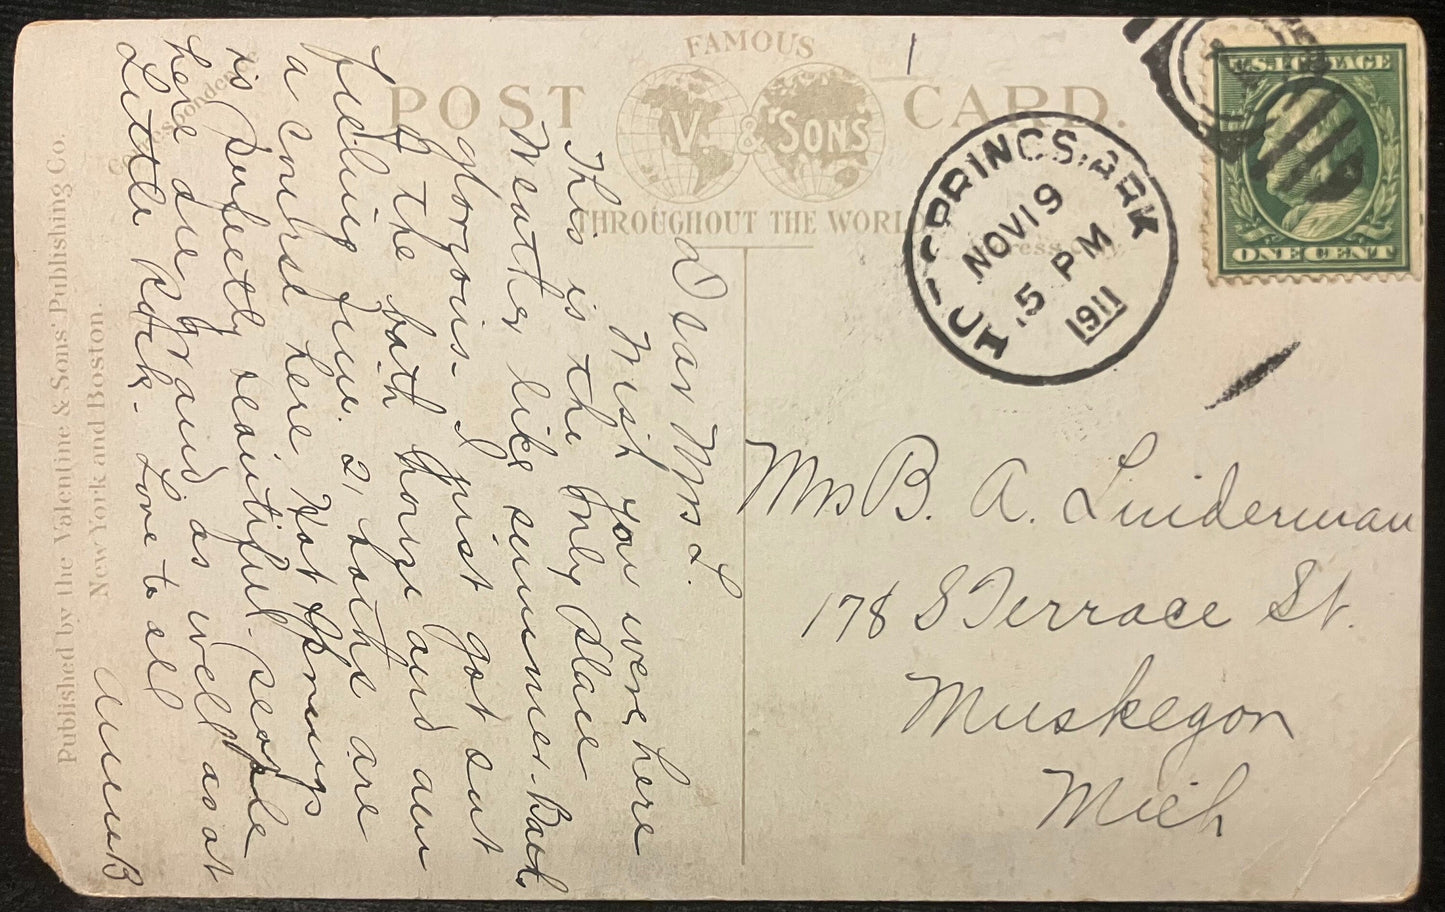 FAMOUS
POST CARD.
V. & SONS
THROUGHOUT THE WORLD
Correspondence
Published by the Valentine & Sons' Publishing Co.
New York and Boston.
1
SPRINGS, ARK
NOV 19
5 PM
1911
U.S. POSTAGE
ONE CENT
Dear Mrs L.
Wish you were here
This is the only place
Weather like summer. Bach
glorgous. I just got out
of the bath house and am
feeling fine. 21 baths are
a course here. Hot Springs
is perfectly beautiful. people
here are grand as well as at
Little Rock. Love to all
Anna B
Mrs B. A. Linderman
178 S Terrace St.
Muskegon
Mich